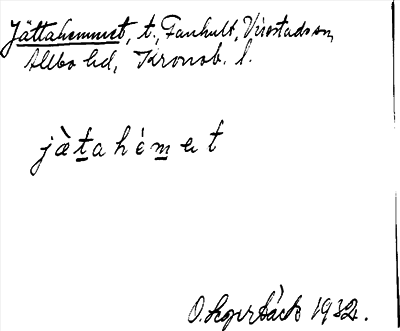 Jättahemmet, t., Fanhult, Virestads sn,
Allbo hd, Kronob. l.
jàtahémet
O. Lagerbäck 1932.